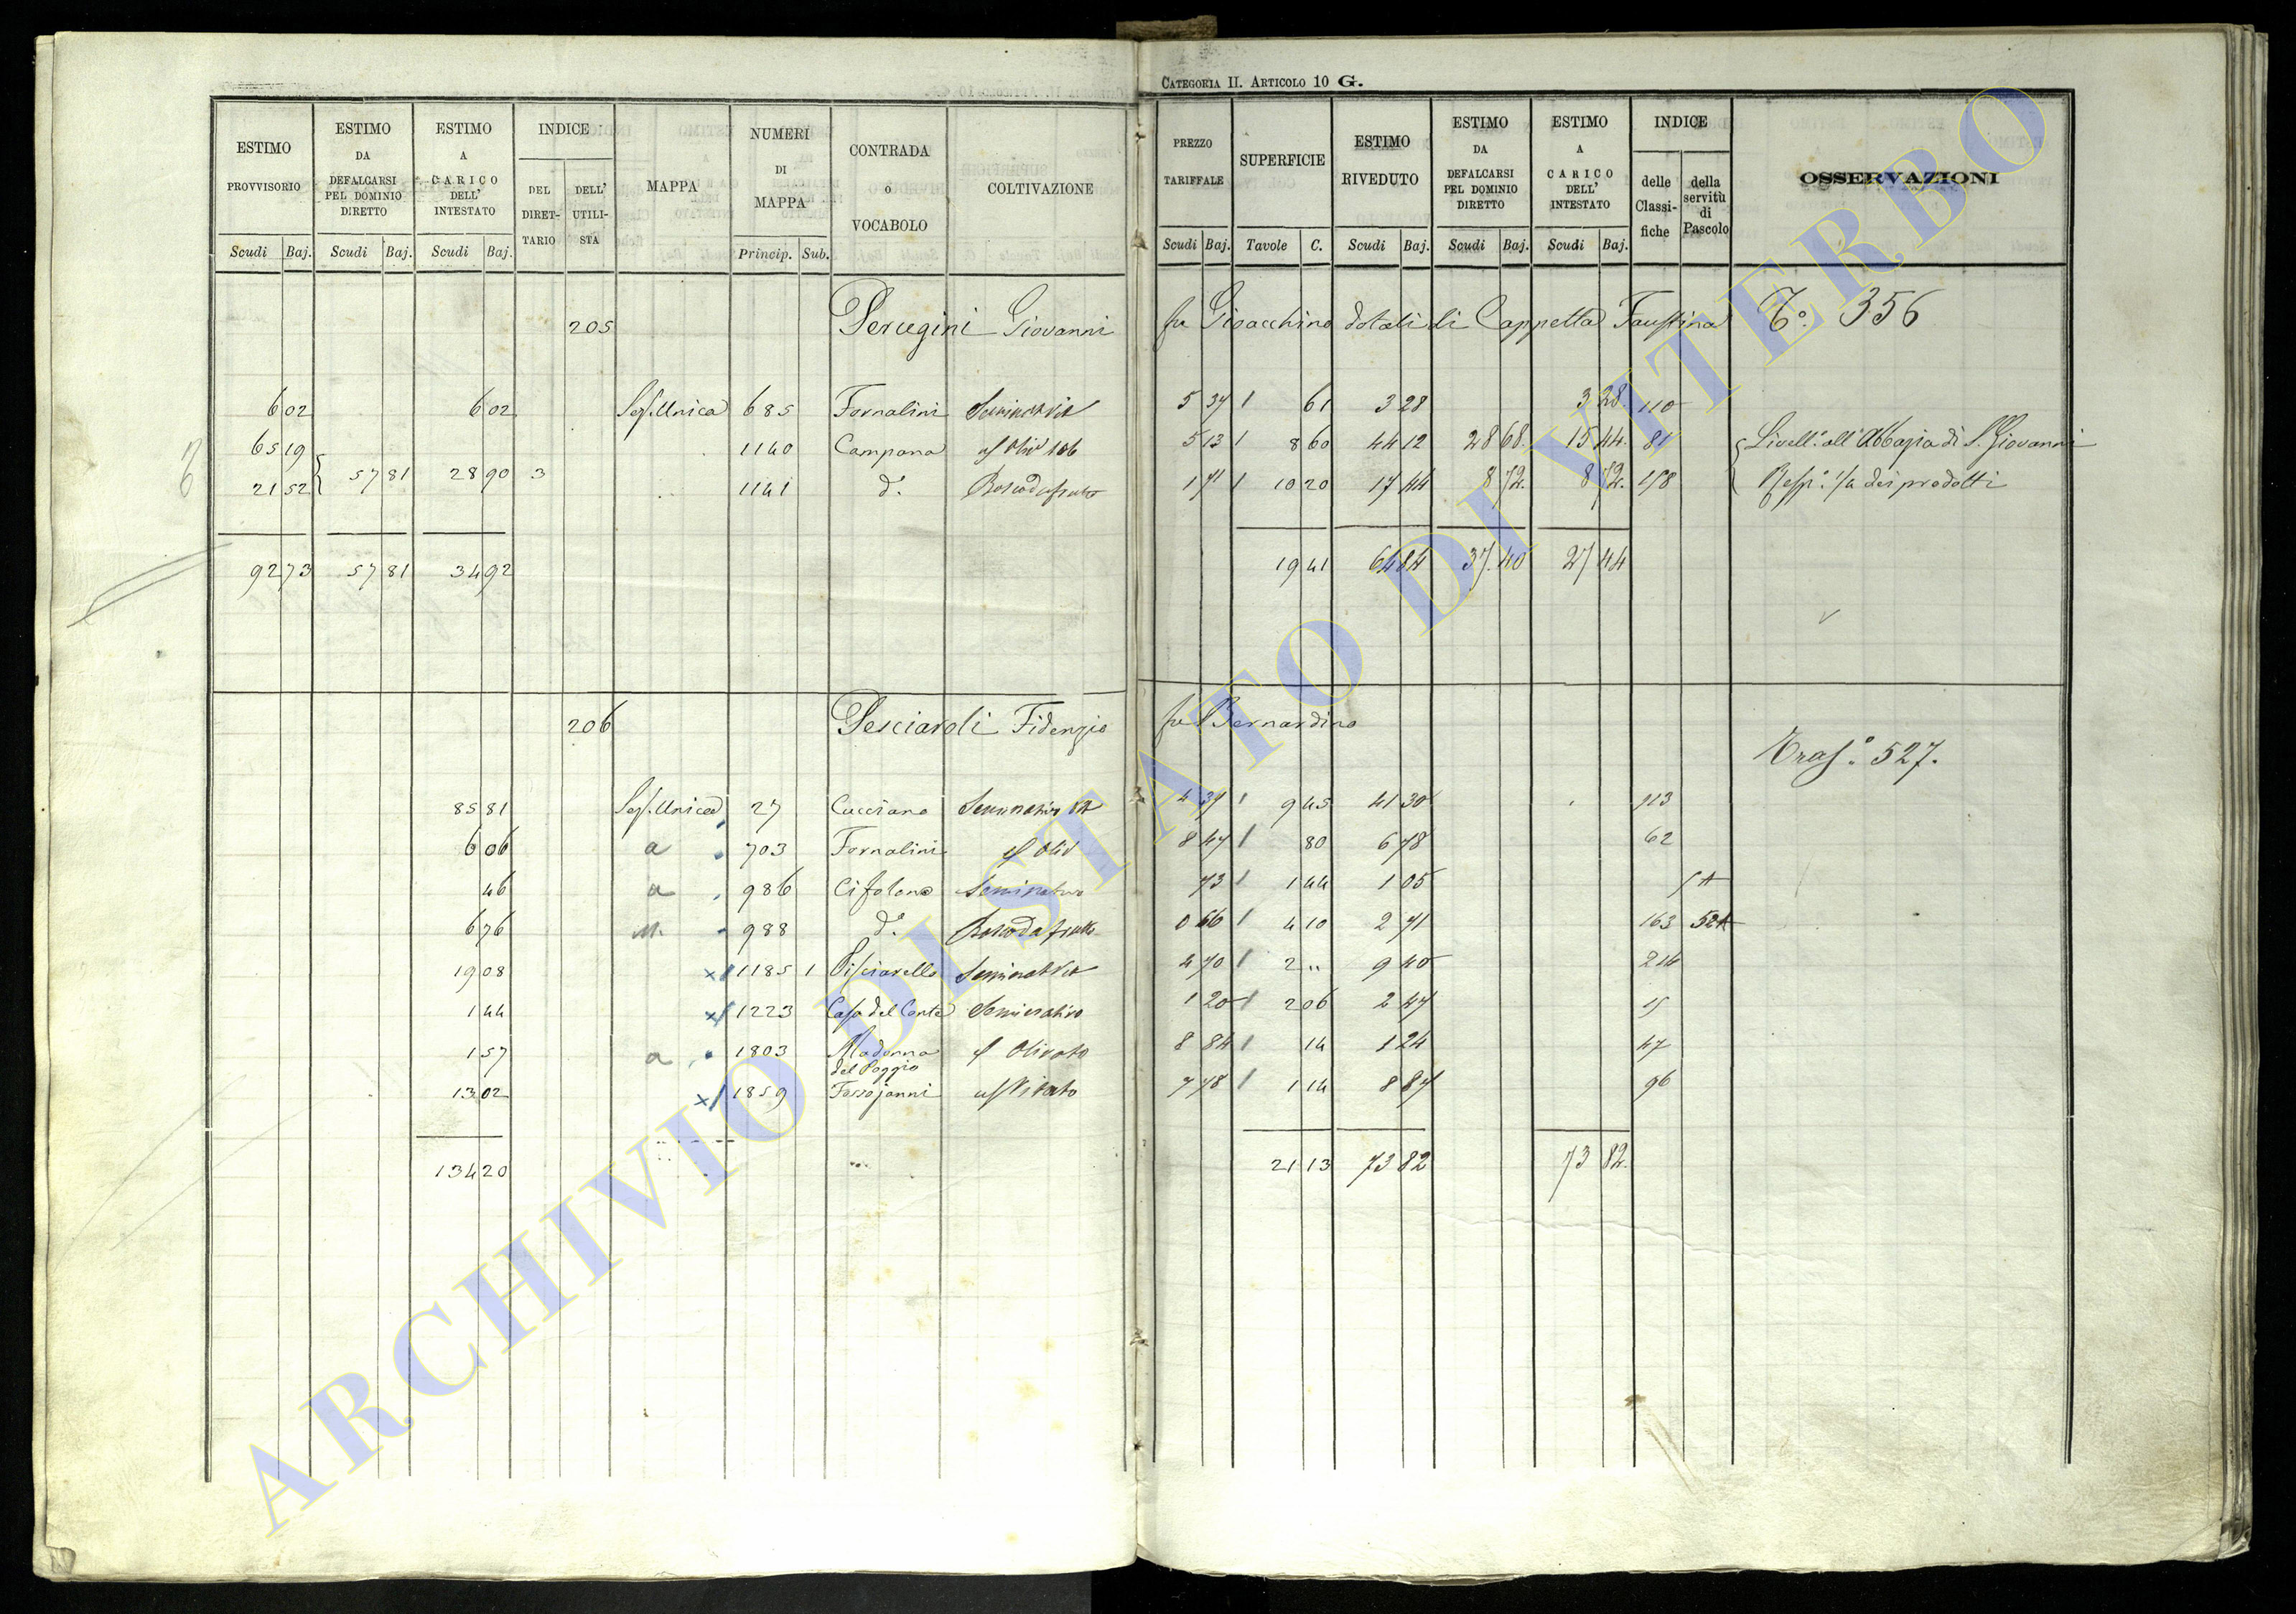 CATEGORIA II. ARTICOLO 10 G.
ESTIMO PROVVISORIO | ESTIMO DA DEFALCARSI PEL DOMINIO DIRETTO | ESTIMO A CARICO DELL' INTESTATO | INDICE | MAPPA | NUMERI DI MAPPA | CONTRADA o VOCABOLO | COLTIVAZIONE | PREZZO TARIFFALE | SUPERFICIE | ESTIMO RIVEDUTO | ESTIMO DA DEFALCARSI PEL DOMINIO DIRETTO | ESTIMO A CARICO DELL' INTESTATO | INDICE | OSSERVAZIONI
DEL DIRETTARIO | DELL' UTILISTA | delle Classifiche | della servitù di Pascolo
Scudi | Baj. | Scudi | Baj. | Scudi | Baj. | Princip. | Sub. | Scudi | Baj. | Tavole | C. | Scudi | Baj. | Scudi | Baj. | Scudi | Baj.
205 Perugini Giovanni fu Gioacchino dotali di Cappetta Faustina To. 356
6 02 | 6 02 | Sez. Unica | 685 | Fornalini | Seminat Vit | 5 37 | 61 | 3 28 | 3 28 | 110
65 19 | 1140 | Campana | 5 13 | 8 60 | 44 12 | 28 68 | 15 44 | 81 | Livell. all' Abbazia di S. Giovanni
21 52 | 57 81 | 28 90 | 3 | 1141 | do. | Bosco da frutto | 1 71 | 10 20 | 17 44 | 8 72 | 8 72 | 158 | dei prodotti
92 73 | 57 81 | 34 92 | 19 41 | 64 84 | 37 40 | 27 44
206 Pesciaroli Fidenzio fu Bernardino
Tras. o 527.
85 81 | Sez. Unica | 27 | Cucciano | Seminativo Vit | 4 37 | 9 45 | 41 30 | 113
6 06 | a | 703 | Fornalini | Oliv | 8 47 | 80 | 6 78 | 62
46 | a | 986 | Cifolona | Seminativo | 73 | 1 44 | 1 05
6 76 | 988 | do. | Bosco da frutto | 0 66 | 4 10 | 2 71 | 163
19 08 | x | 1185 | 1 | Pisciarello | Seminat Vit | 4 70 | 2 " | 9 40
1 44 | x | 1223 | Casa del Conte | Seminativo | 1 20 | 2 06 | 2 47 | 15
1 57 | a | 1803 | Madonna del Poggio | Olivato | 8 84 | 14 | 1 24 | 47
13 02 | x | 1859 | Fossojanni | Vitato | 7 78 | 1 14 | 8 87 | 96
134 20 | 21 13 | 73 82 | 73 82
ARCHIVIO DI STATO DI VITERBO